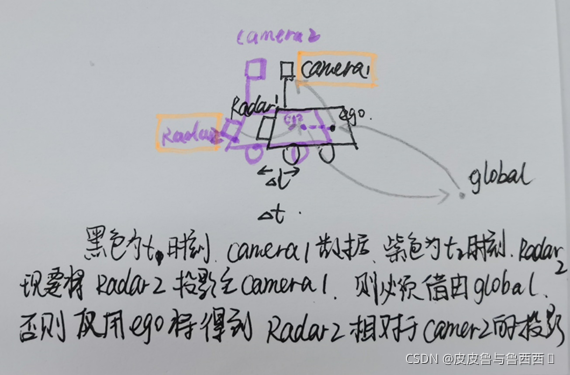 camera2
camera1
Radar1
ego
Radar2
global
Δt
Δt.
黑色为t1时刻. camera1数据, 紫色为t2时刻. Radar2
现要将 Radar2 投影至 camera1. 则必须借由 global.
否则 仅用 ego 将得到 Radar2 相对于 camer2 的投影
CSDN @皮皮鲁与鲁西西